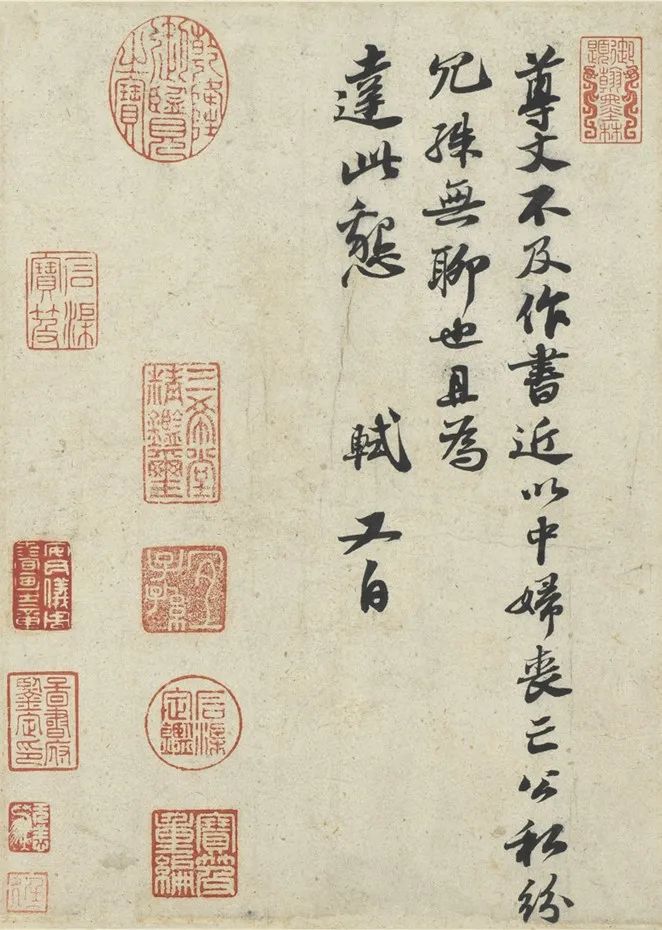 御題翰墨林
尊丈不及作書近以中婦喪亡公私紛
冗殊無聊也且為
達此懇 軾 又白
乾隆御覽之寶
三希堂精鑑璽
石渠定鑑
寶笈重編
石渠寶笈
安儀周書畫之章